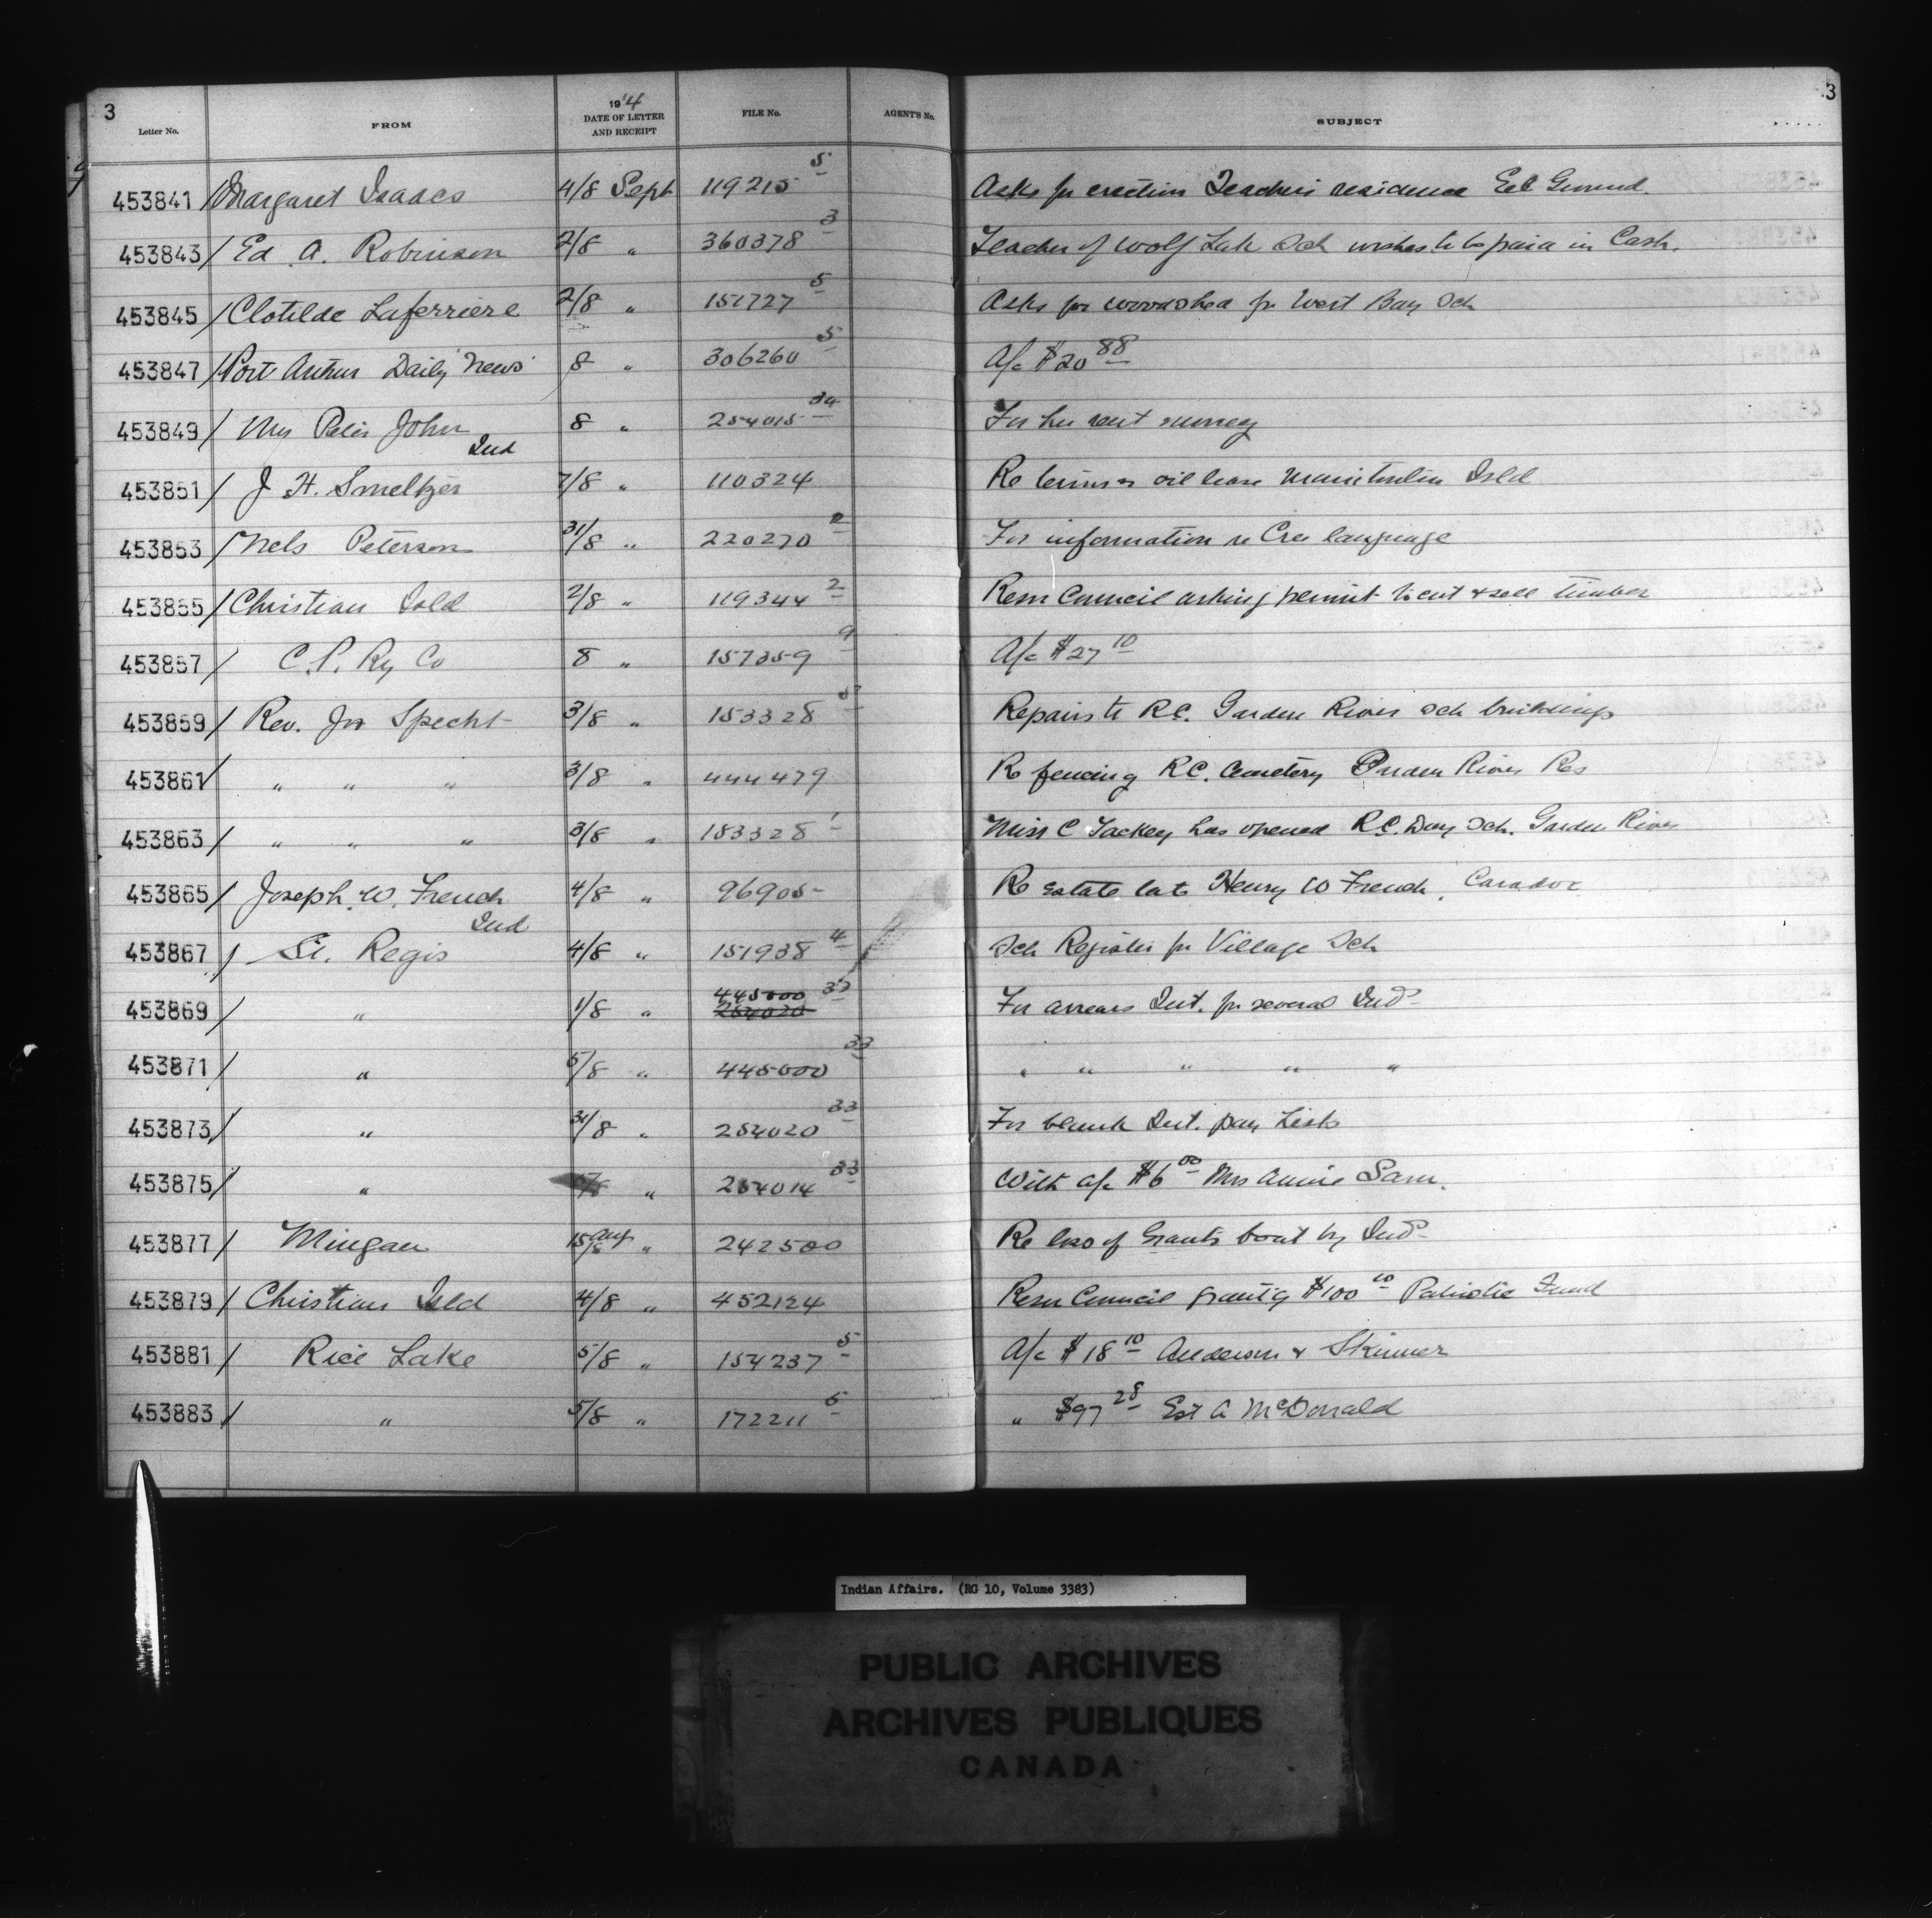 3
3
Letter No. FROM 1914 DATE OF LETTER AND RECEIPT FILE No. AGENT'S No. SUBJECT
453841 Margaret Isaacs 4/8 Sept 119215 5 Asks for erection Teacher's residence
453843 Ed. A. Robinson 2/8 " 360378 3 Teacher of Wolf Lake Sch wishes to be paid in Cash.
453845 Clotilde Laferriere 2/8 " 151727 5 Asks for woodshed for West Bay Sch
453847 Port Arthur Daily News 8 " 306260 5 A/c $20 88
453849 Mrs Peter John Ind 8 " 254015 34 For her rent money
453851 J. H. Smeltzer 7/8 " 110324 Re terms oil lease Manitoulin Isld
453853 Nels Peterson 31/8 " 220270 2 For information re Cree language
453855 Christian Isld 2/8 " 119344 2 Resn Council asking permit to cut & sell timber
453857 C. P. Ry Co 8 " 157359 9 A/c $27 10
453859 Rev. Jos Specht 3/8 " 153328 5 Repairs to R.C. Garden River Sch buildings
453861 " " " 3/8 " 444479 Re fencing R.C. Cemetery Garden River Res
453863 " " " 3/8 " 183328 1 Miss C Lackey has opened R.C. Day Sch. Garden River
453865 Joseph W. French Ind 4/8 " 96905 Re estate late Henry W French, Caradoc
453867 St. Regis 4/8 " 151938 4 Sch Register for Village Sch
453869 " 1/8 " 445000 33 254020 For arrears Int. for several Inds
453871 " 5/8 " 445000 33 " " " " "
453873 " 31/8 " 254020 33 For blank Int. pay Lists
453875 " 5/8 " 254014 33 With a/c $6 00 Mrs Annie Sam.
453877 Mingan 15 Aug/8 " 242500 Re loss of Grant's boat by Inds
453879 Christian Isld 4/8 " 452124 Resn Council grantg $100 00 Patriotic Fund
453881 Rice Lake 5/8 " 154237 5 A/c $18 10 Anderson & Skinner
453883 " 5/8 " 172211 5 " $97 28 Est A McDonald
Indian Affairs. (RG 10, Volume 3383)
PUBLIC ARCHIVES
ARCHIVES PUBLIQUES
CANADA